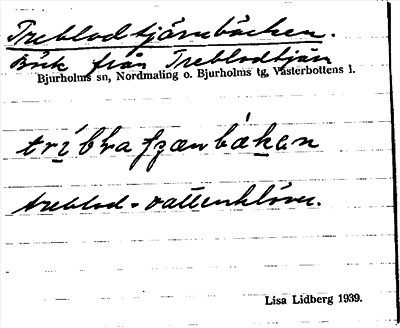 Treblodtjärnbäcken.
Bäck från Treblodtjän
Bjurholms sn, Nordmaling o. Bjurholms tg, Västerbottens l.
treblod = vattenklöver.
Lisa Lidberg 1939.